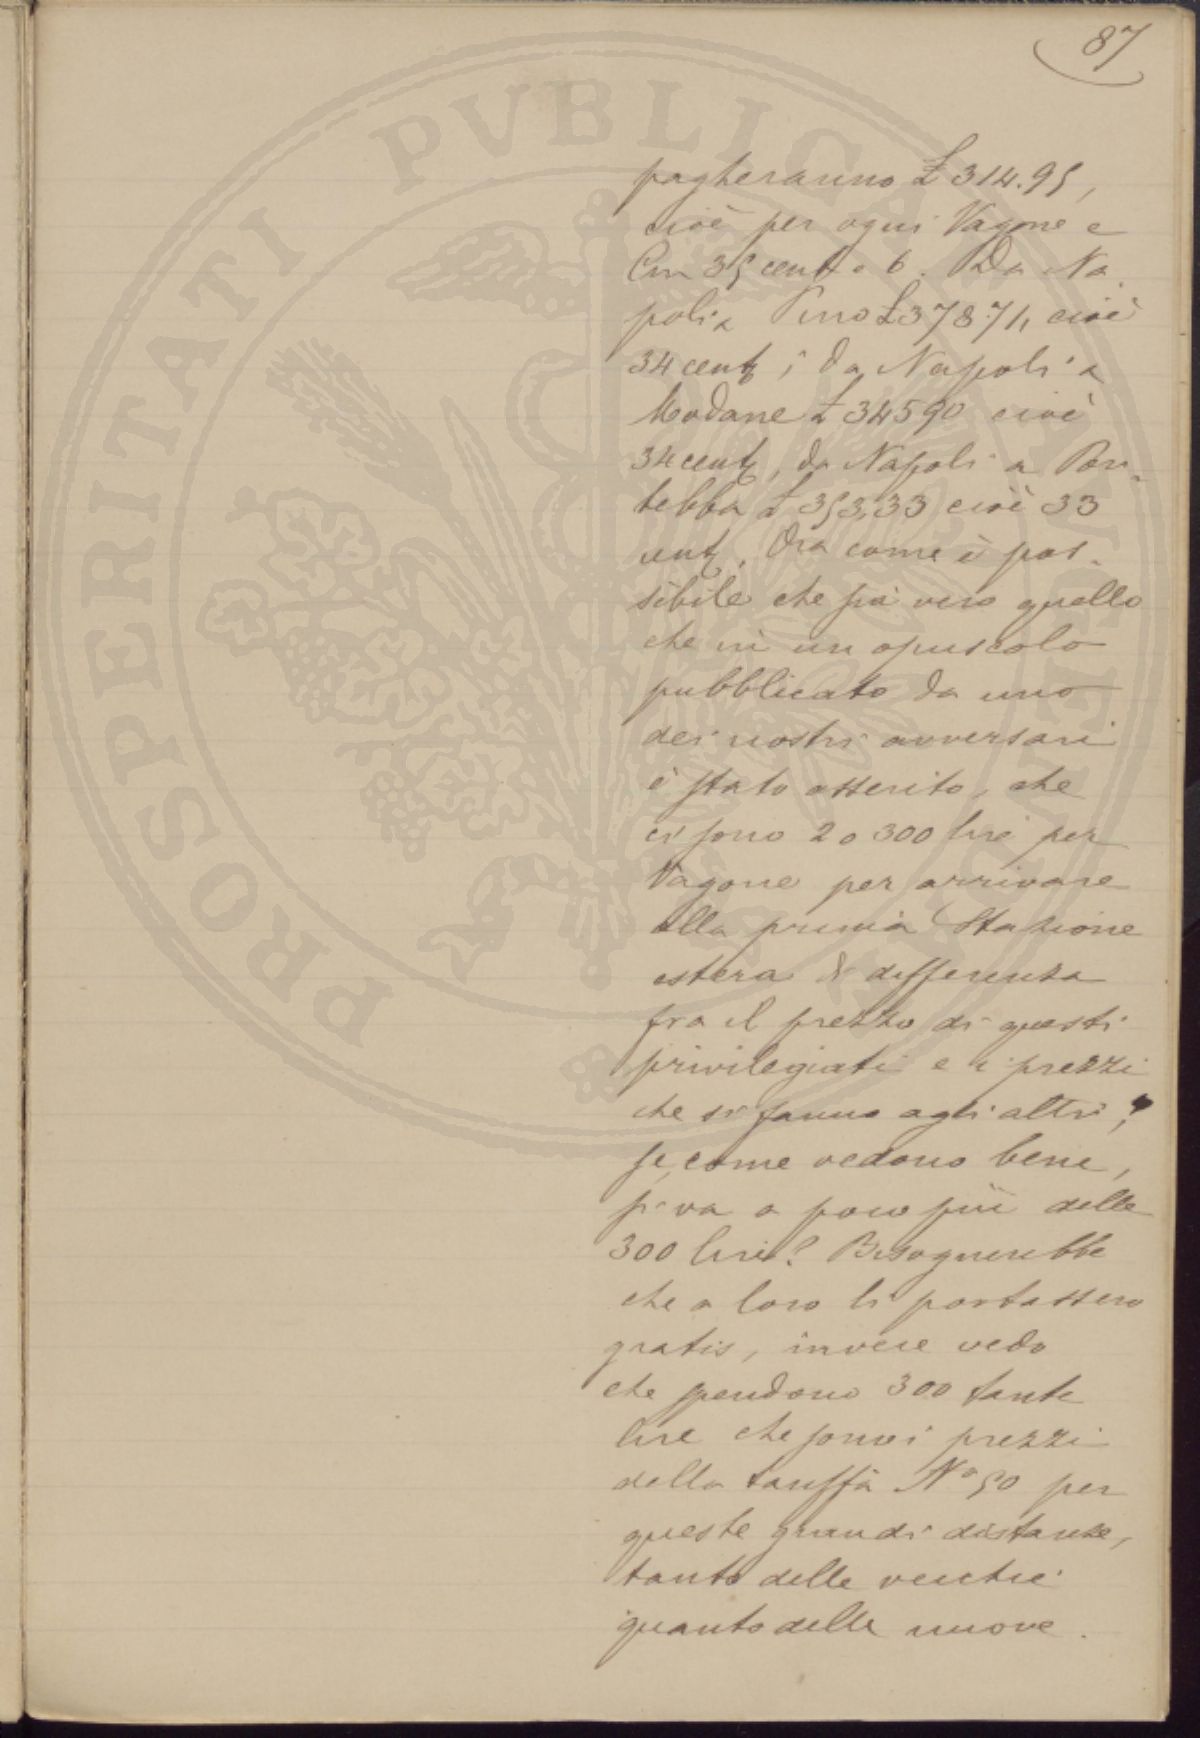 87
pagheranno £ 314.95,
cioè per ogni Vagone e
Cm 35 cent e 6. Da Na
poli a Pino £378.71, cioè
34 centi; da Napoli a
Modane £ 34590 cioè
34 centi, da Napoli a Pon-
tebba £ 353,33 cioè 33
centi. Ora come è pos-
sibile che sia vero quello
che in un opuscolo
pubblicato da uno
dei nostri avversari
è stato asserito, che
ci sono 2 o 300 lire per
Vagone per arrivare
alla prima Stazione
estera di differenza
fra il prezzo di questi
privilegiati e i prezzi
che si fanno agli altri,?
se, come vedono bene,
si va a poco più delle
300 lire? Bisognerebbe
che a loro li portassero
gratis, invece vedo
che spendono 300 tante
lire che sono i prezzi
della tariffa N° 50 per
queste grandi distanze,
tanto delle vecchie
quanto delle nuove.
PROSPERITATI PVBLICAE